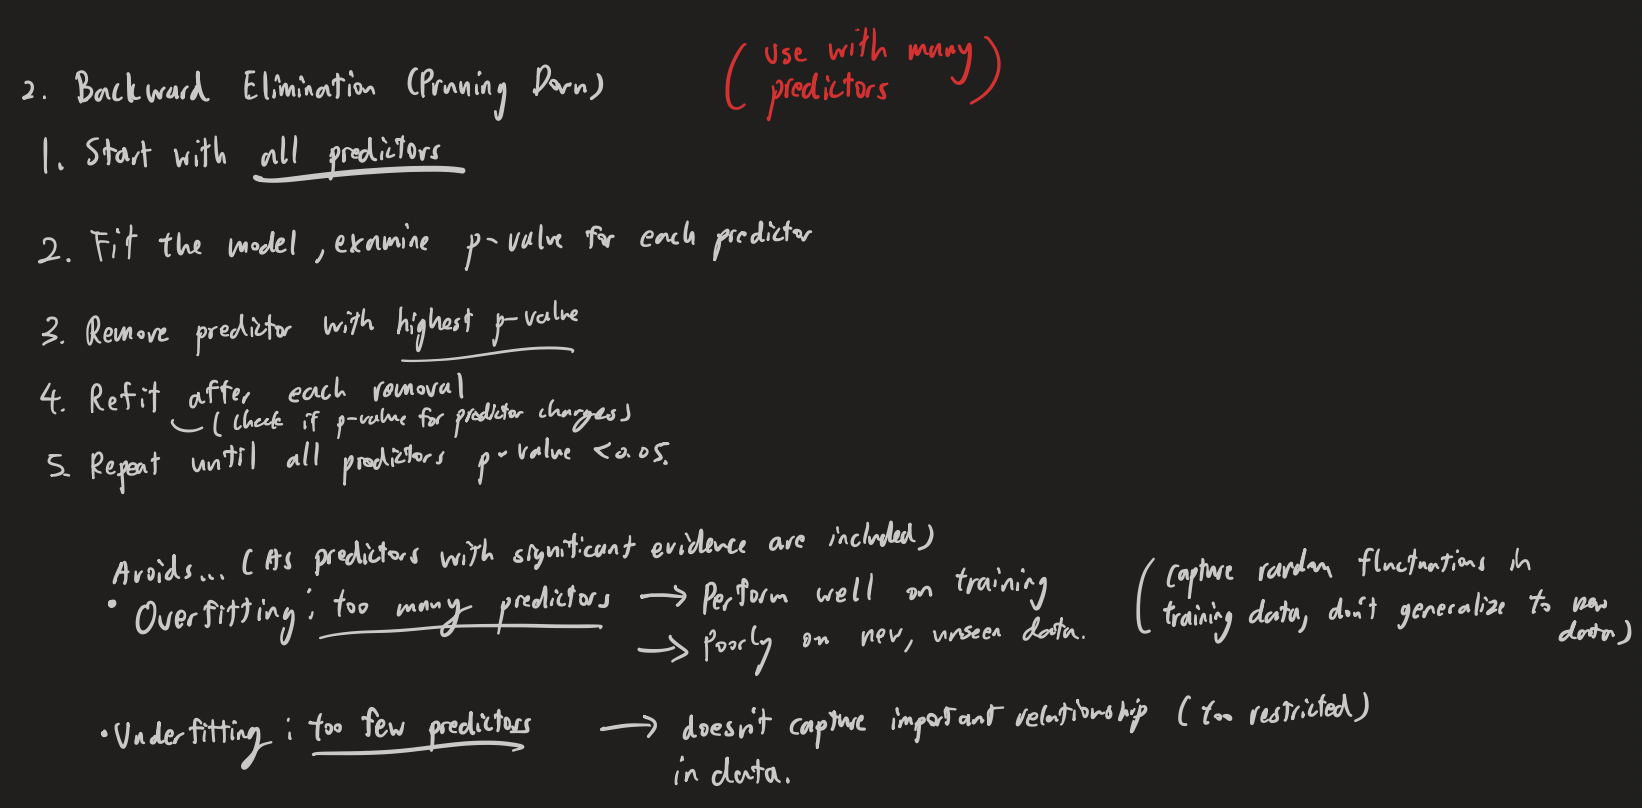 2. Backward Elimination (Pruning Down)
(use with many
predictors)
1. Start with all predictors
2. Fit the model, examine p-value for each predictor
3. Remove predictor with highest p-value
4. Refit after each removal
(check if p-value for predictor changes)
5. Repeat until all predictors p-value <0.05.
Avoids... (As predictors with significant evidence are included)
• Overfitting: too many predictors → Perform well on training
→ Poorly on new, unseen data.
(capture random fluctuations in
training data, don't generalize to new
data)
• Underfitting: too few predictors → doesn't capture important relationship (too restricted)
in data.